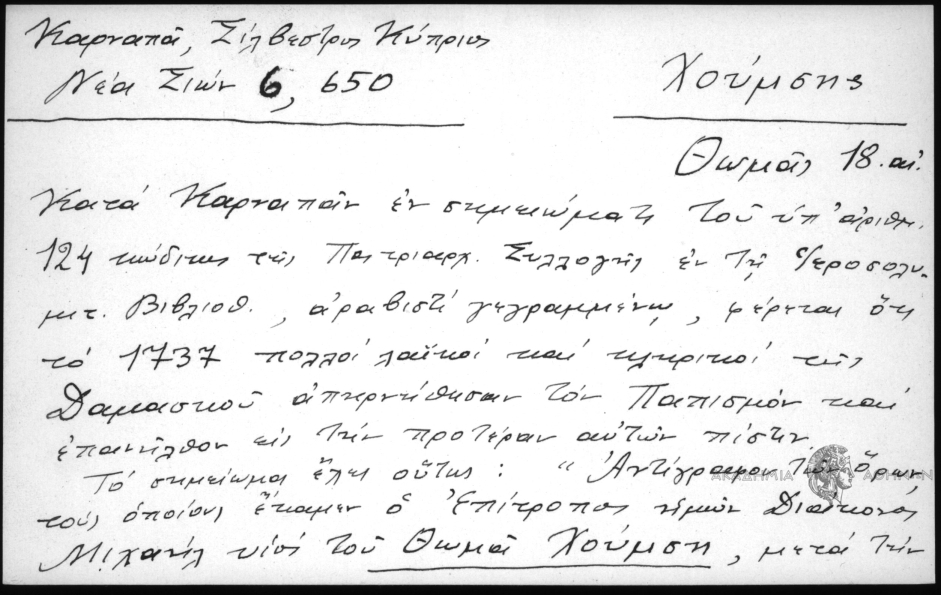 Καρναπᾶ, Σίλβεστρος Κύπριος
Νέα Σιών 6, 650
Χούμσης
Θωμᾶς 18. αἰ.
Κατά Καρναπᾶν ἐν σημειώματι τοῦ ὑπ' ἀριθμ.
124 κώδικος τῆς Πατριαρχ. Συλλογῆς ἐν τῇ Ἱεροσολυ-
μιτ. Βιβλιοθ., ἀραβιστί γεγραμμένῳ, φέρεται ὅτι
τό 1737 πολλοί λαϊκοί καί κληρικοί τῆς
Δαμασκοῦ ἀπηρνήθησαν τόν Παπισμόν καί
ἐπανῆλθον εἰς τήν προτέραν αὐτῶν πίστιν
Τό σημείωμα ἔχει οὕτως: "Ἀντίγραφον τῶν ὅρων,
τούς ὁποίους ἔκαμεν ὁ Ἐπίτροπος ἡμῶν Διάκονος
Μιχαήλ υἱός τοῦ Θωμᾶ Χούμση, μετά τήν
ΑΚΑΔΗΜΙΑ ΑΘΗΝΩΝ